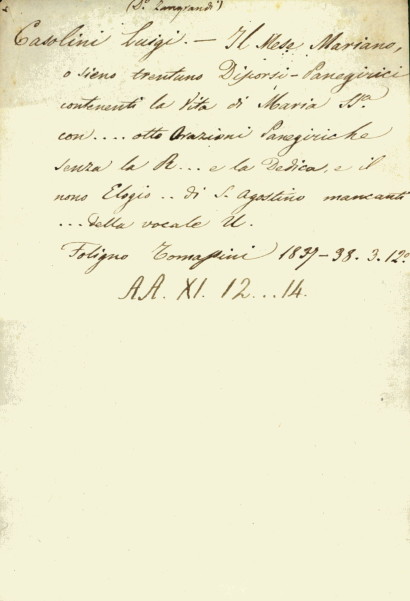 Casolini Luigi. — Il Mese Mariano,
o sieno trentuno Discorsi-Panegirici
contenenti la Vita di Maria SS.
con .... otto Orazioni Panegiriche
senza la R... e la Dedica, e il
nono Elogio .. di S. Agostino mancanti
... della vocale U.
Foligno Tomassini 1837-38. 3. 12º
AA. XI. 12...14.